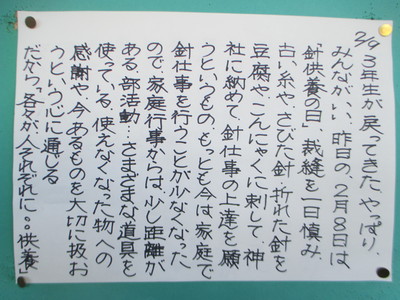 2/9 3年生が戻ってきた、やっぱり、
みんながいい、昨日の、2月8日は
「針供養の日」、裁縫を一日慎み、
古い糸や、さびた針・折れた針を
豆腐や、こんにゃくに刺して、神
社に納めて、針仕事の上達を願
うというもの、もっとも今は、家庭で
針仕事を行うことが少なくなった
ので、家庭行事からは、少し距離が
ある、部活動…さまざまな道具を
使っている、使えなくなった物への
感謝や、今あるものを大切に扱お
うという心に通じる
だから、「各々が、それぞれに○○供養」